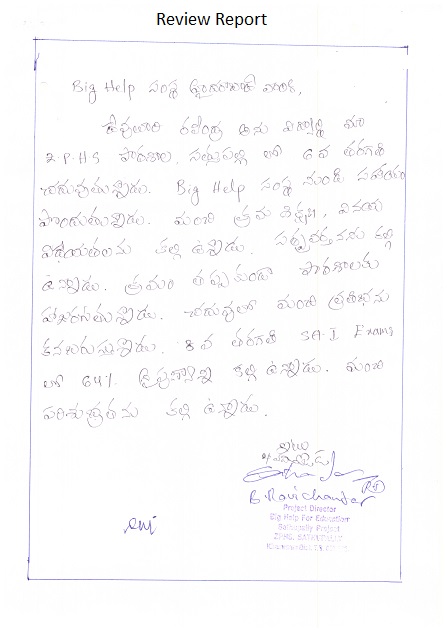 Review Report
Big Help సంస్థ హైదరాబాద్ వారికి,
రవీంద్ర అను విద్యార్థి మా
Z.P.H.S పాఠశాల, సత్తుపల్లి లో 6 వ తరగతి
చదువుతున్నాడు. Big Help సంస్థ నుండి సహాయం
పొందుతున్నాడు. మంచి క్రమ శిక్షణ, వినయ
విధేయతలను కల్గి ఉన్నాడు. సత్ప్రవర్తనను కల్గి
ఉన్నాడు. క్రమం తప్పకుండా పాఠశాలకు
హాజరగుతున్నాడు. చదువులో మంచి ప్రతిభను
కనబరుస్తున్నాడు. 8 వ తరగతి SA-I Exams
లో 64% కల్గి ఉన్నాడు. మంచి
పరిశుభ్రతను కల్గి ఉన్నాడు.
ఇట్లు
B. Ravi Chander
Project Director
Big Help For Education